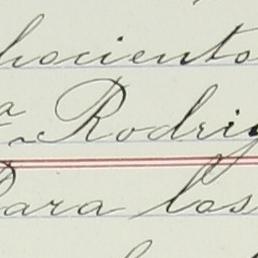 hocientos
Rodrig
Para los